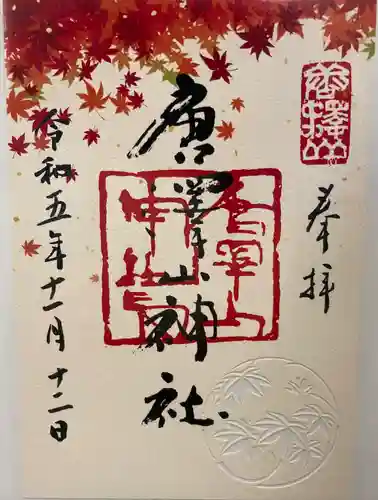 唐澤山
奉拝
唐澤山神社
唐澤山
神社
令和五年十一月十二日